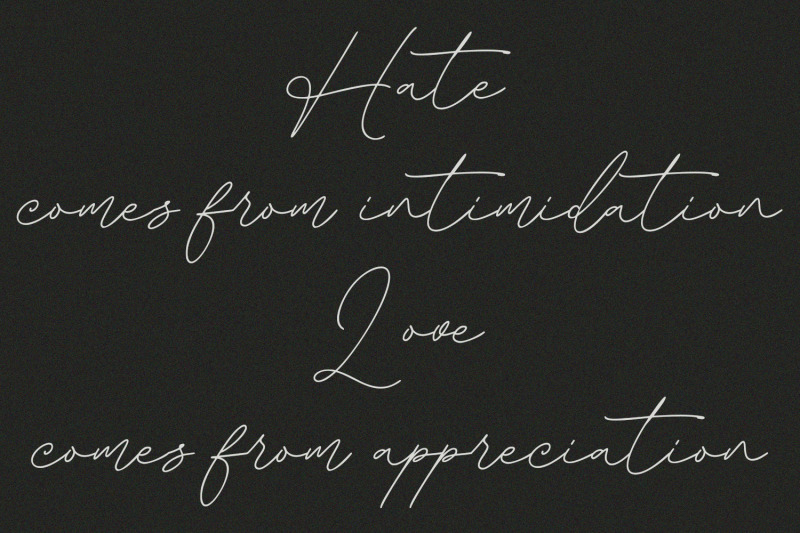 Hate
comes from intimidation
Love
comes from appreciation